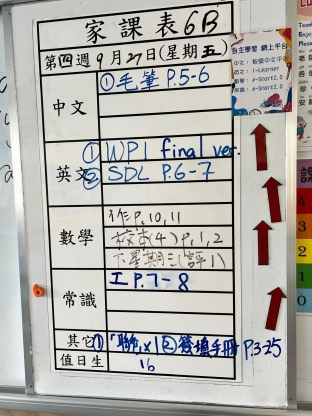 家課表6B
第四週 9月27日(星期五)
中文
①毛筆 P.5-6
英文
① WP1 final ver.
② SDL P.6-7
數學
作 P.10,11
校本(4) P.1,2
下星期三(評1)
常識
工 P.7-8
其它
①聯x1 ②簽填手冊 P.3-25
值日生
16
自主學習 網上平台